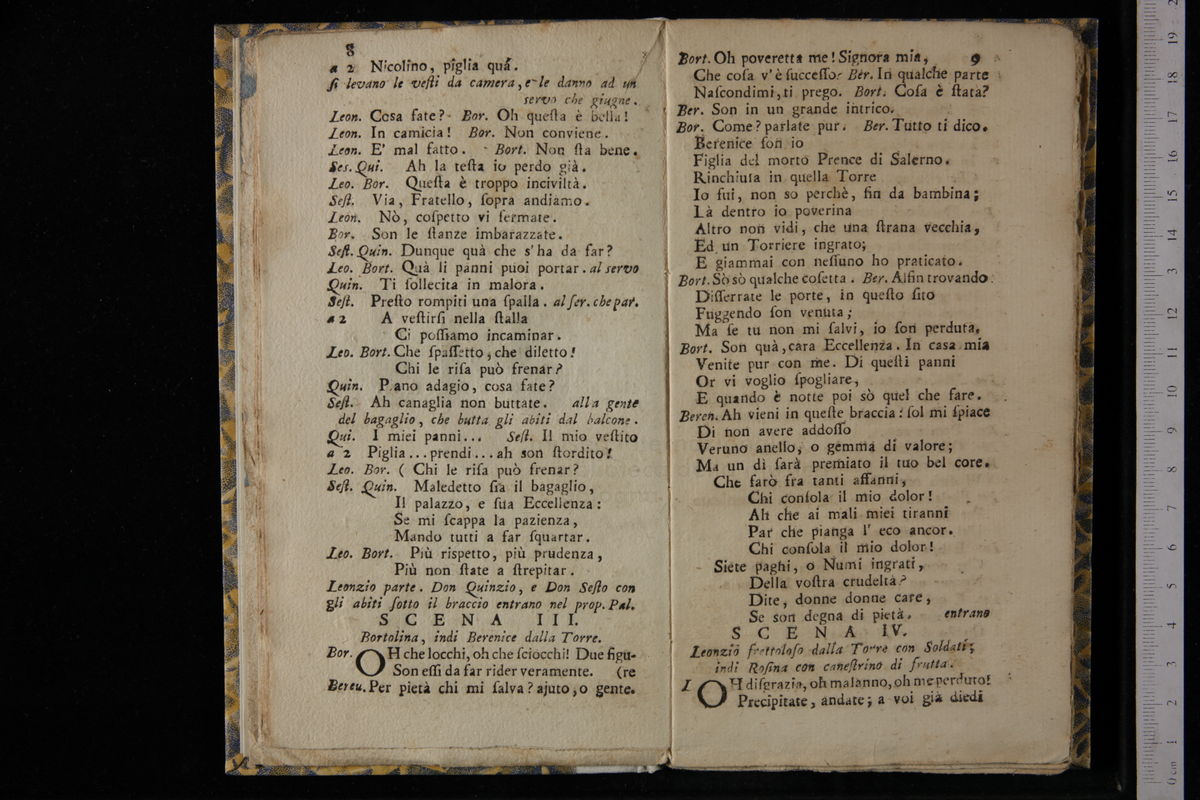 8
a 2 Nicolino, piglia quá.
ſi levano le veſti da camera, e le danno ad un
servo che giugne.
Leon. Cosa fate? Bor. Oh queſta è bella!
Leon. In camicia! Bor. Non conviene.
Leon. E' mal fatto. Bort. Non ſta bene.
Ses. Qui. Ah la teſta io perdo già.
Leo. Bor. Queſta è troppo inciviltà.
Seſt. Via, Fratello, ſopra andiamo.
Leon. Nò, coſpetto vi fermate.
Bor. Son le ſtanze imbarazzate.
Seſt. Quin. Dunque quà che s'ha da far?
Leo. Bort. Quà li panni puoi portar. al servo
Quin. Ti ſollecita in malora.
Seſt. Preſto rompiti una ſpalla. al ſer. che par.
a 2 A veſtirſi nella ſtalla
Ci poſſiamo incaminar.
Leo. Bort. Che ſpaſſetto, che diletto!
Chi le riſa può frenar?
Quin. Piano adagio, cosa fate?
Seſt. Ah canaglia non buttate. alla gente
del bagaglio, che butta gli abiti dal balcone.
Qui. I miei panni... Seſt. Il mio veſtito
a 2 Piglia...prendi...ah son ſtordito!
Leo. Bor. ( Chi le riſa può frenar?
Seſt. Quin. Maledetto ſia il bagaglio,
Il palazzo, e ſua Eccellenza:
Se mi scappa la pazienza,
Mando tutti a far ſquartar.
Leo. Bort. Più rispetto, più prudenza,
Più non ſtate a ſtrepitar.
Leonzio parte. Don Quinzio, e Don Seſto con
gli abiti ſotto il braccio entrano nel prop. Pal.
SCENA III.
Bortolina, indi Berenice dalla Torre.
Bor. OH che locchi, oh che ſciocchi! Due figu-
Son eſſi da far rider veramente. (re
Bereu. Per pietà chi mi salva? ajuto, o gente.
9
Bort. Oh poveretta me! Signora mia,
Che coſa v'è ſucceſſo? Ber. In qualche parte
Naſcondimi, ti prego. Bort. Coſa è ſtata?
Ber. Son in un grande intrico.
Bor. Come? parlate pur. Ber. Tutto ti dico.
Berenice ſon io
Figlia del morto Prence di Salerno.
Rinchiuſa in quella Torre
Io fui, non so perchè, fin da bambina;
Là dentro io poverina
Altro non vidi, che una ſtrana vecchia,
Ed un Torriere ingrato;
E giammai con neſſuno ho praticato.
Bort. Sò sò qualche coſetta. Ber. Alfin trovando
Diſſerrate le porte, in queſto ſito
Fuggendo ſon venuta;
Ma ſe tu non mi ſalvi, io ſon perduta.
Bort. Son quà, cara Eccellenza. In casa mia
Venite pur con me. Di queſti panni
Or vi voglio ſpogliare,
E quando è notte poi sò quel che fare.
Beren. Ah vieni in queſte braccia: ſol mi ſpiace
Di non avere addoſſo
Veruno anello, o gemma di valore;
Ma un dì ſarà premiato il tuo bel core.
Che farò fra tanti affanni,
Chi conſola il mio dolor!
Ah che ai mali miei tiranni
Par che pianga l' eco ancor.
Chi conſola il mio dolor!
Siete paghi, o Numi ingrati,
Della voſtra crudeltà?
Dite, donne donne care,
Se son degna di pietà. entrano
SCENA IV.
Leonzio frettoloſo dalla Torre con Soldati;
indi Roſina con caneſtrino di frutta.
OH diſgrazia, oh malanno, oh me perduto!
Precipitate, andate; a voi già diedi